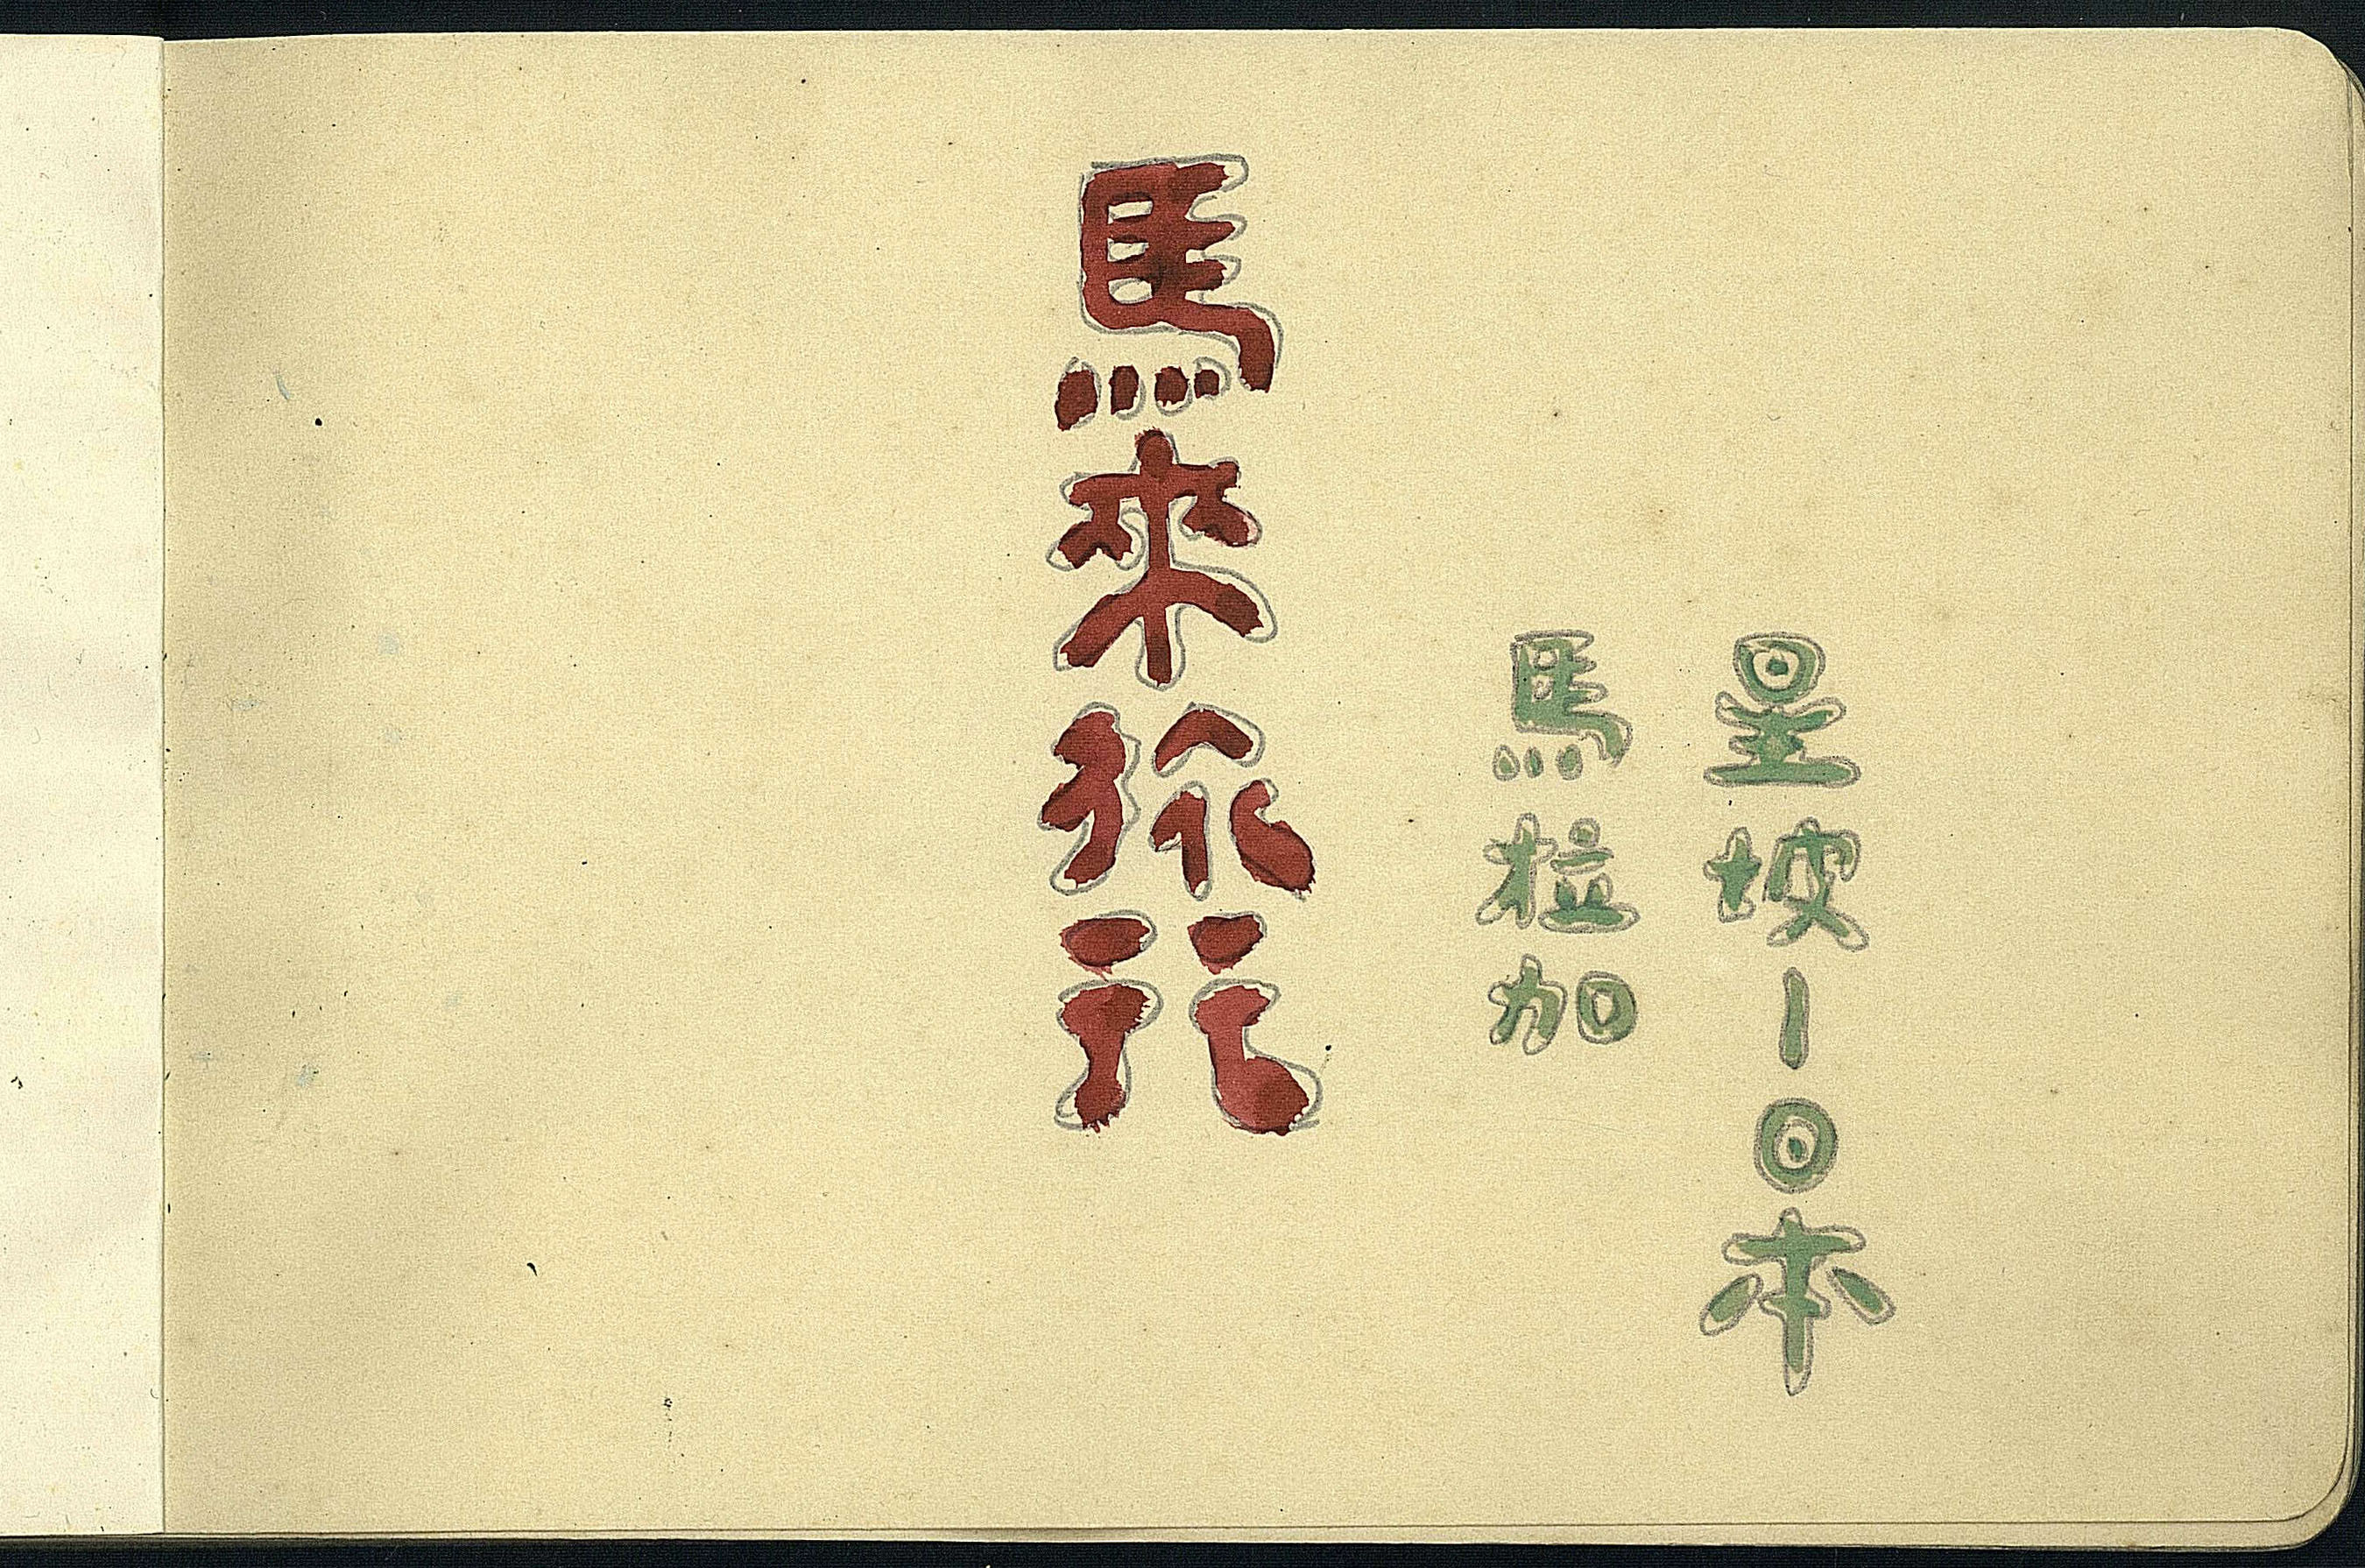 星坡—日本
馬拉加
馬來旅行